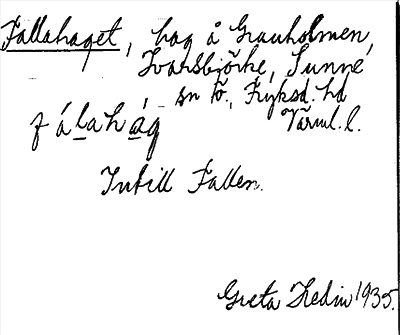 Fallahaget, hag å Granholmen,
Ivarsbjörke, Sunne
sn tö., Fryksd. hd
fálahág Värml. l.
Intill Fallen.
Greta Hedin 1935.